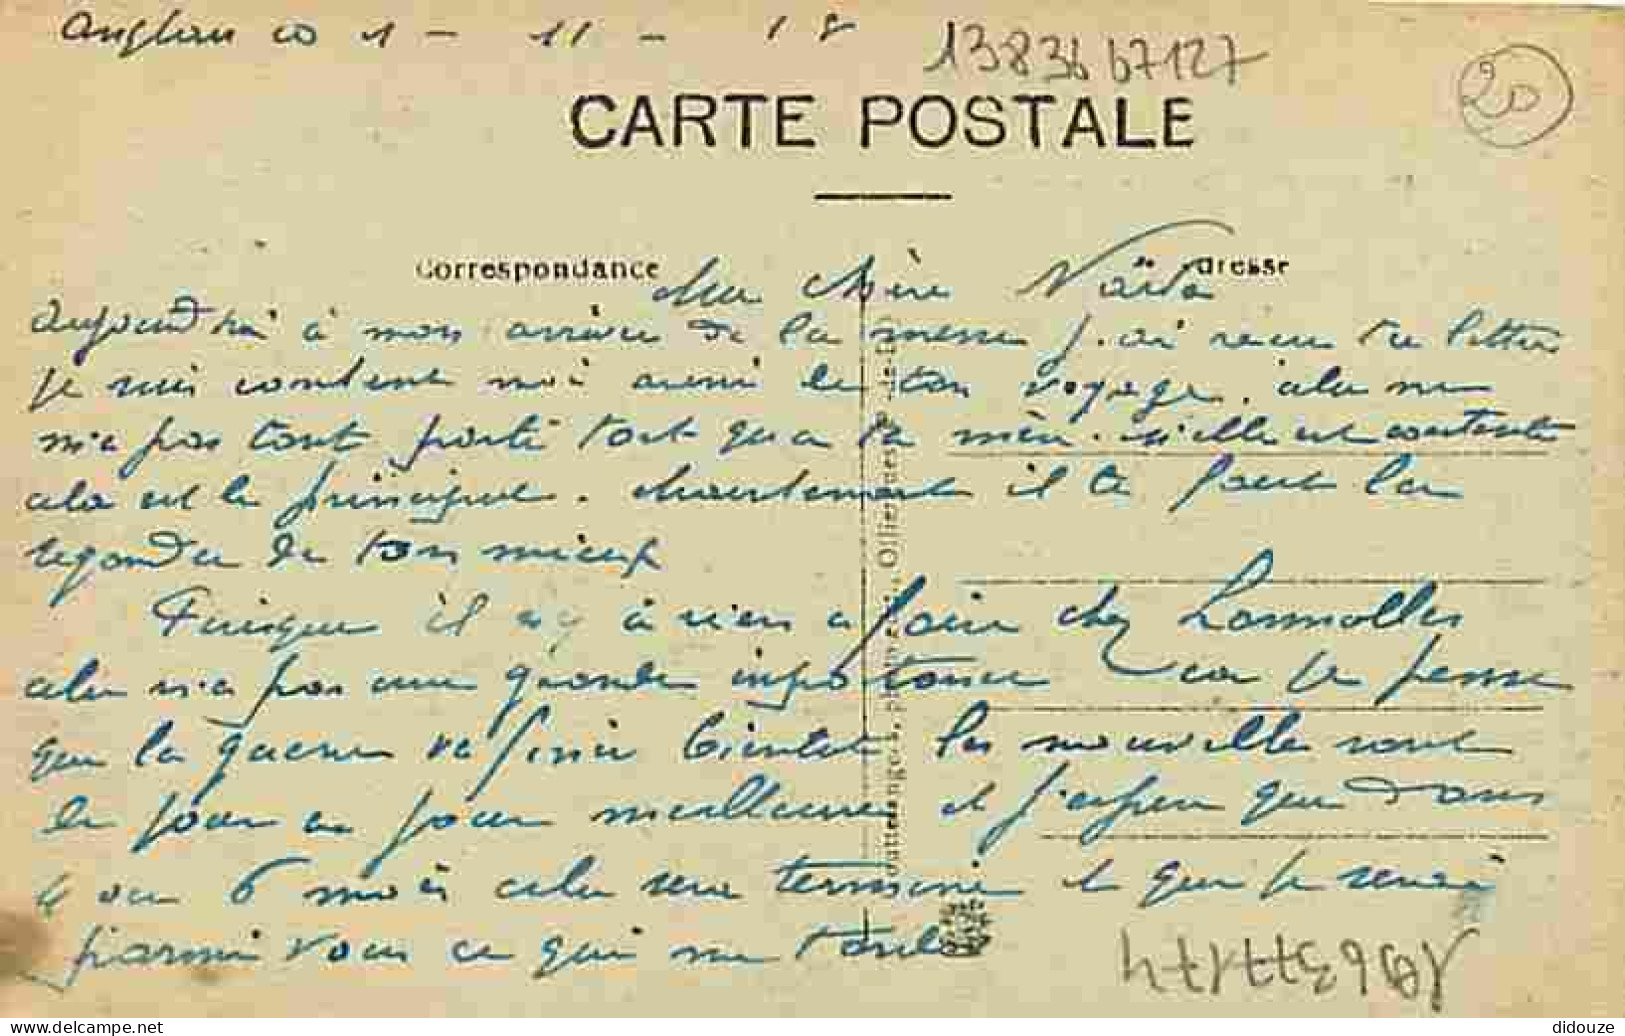 1 - 11 - 18
13836 67127
20
CARTE POSTALE
Correspondance
Adresse
Ma Chère Naïda
aujourd'hui à mon arrivée de la messe j'ai recu ta lettre
je suis contant moi aussi de ton voyage. cela ne
m'a pas tant porté tort qu'a ta mère. s'elle est contente
cela est le principal. maintenant il te faut la
regarder de ton mieux
Puisque il n'y à rien a faire chez
cela n'a pas une grande importance car je pense
que la guerre va finir bientot les nouvelle sont
de jour en jour meilleure et j'espere que dans
4 ou 6 mois cela sera terminé et que je serai
parmi vous ce qui me tarde
didouze